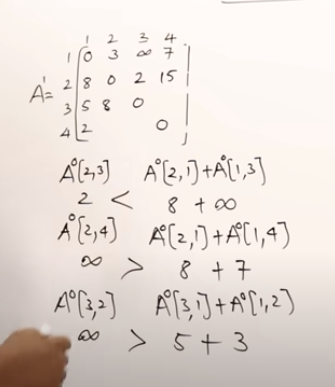 1 2 3 4
1 0 3 ∞ 7
A¹= 2 8 0 2 15
3 5 8 0
4 2 0
A⁰[2,3] A⁰[2,1]+A⁰[1,3]
2 < 8 + ∞
A⁰[2,4] A⁰[2,1]+A⁰[1,4)
∞ > 8 + 7
A⁰[3,2] A⁰[3,1]+A⁰[1,2)
∞ > 5 + 3